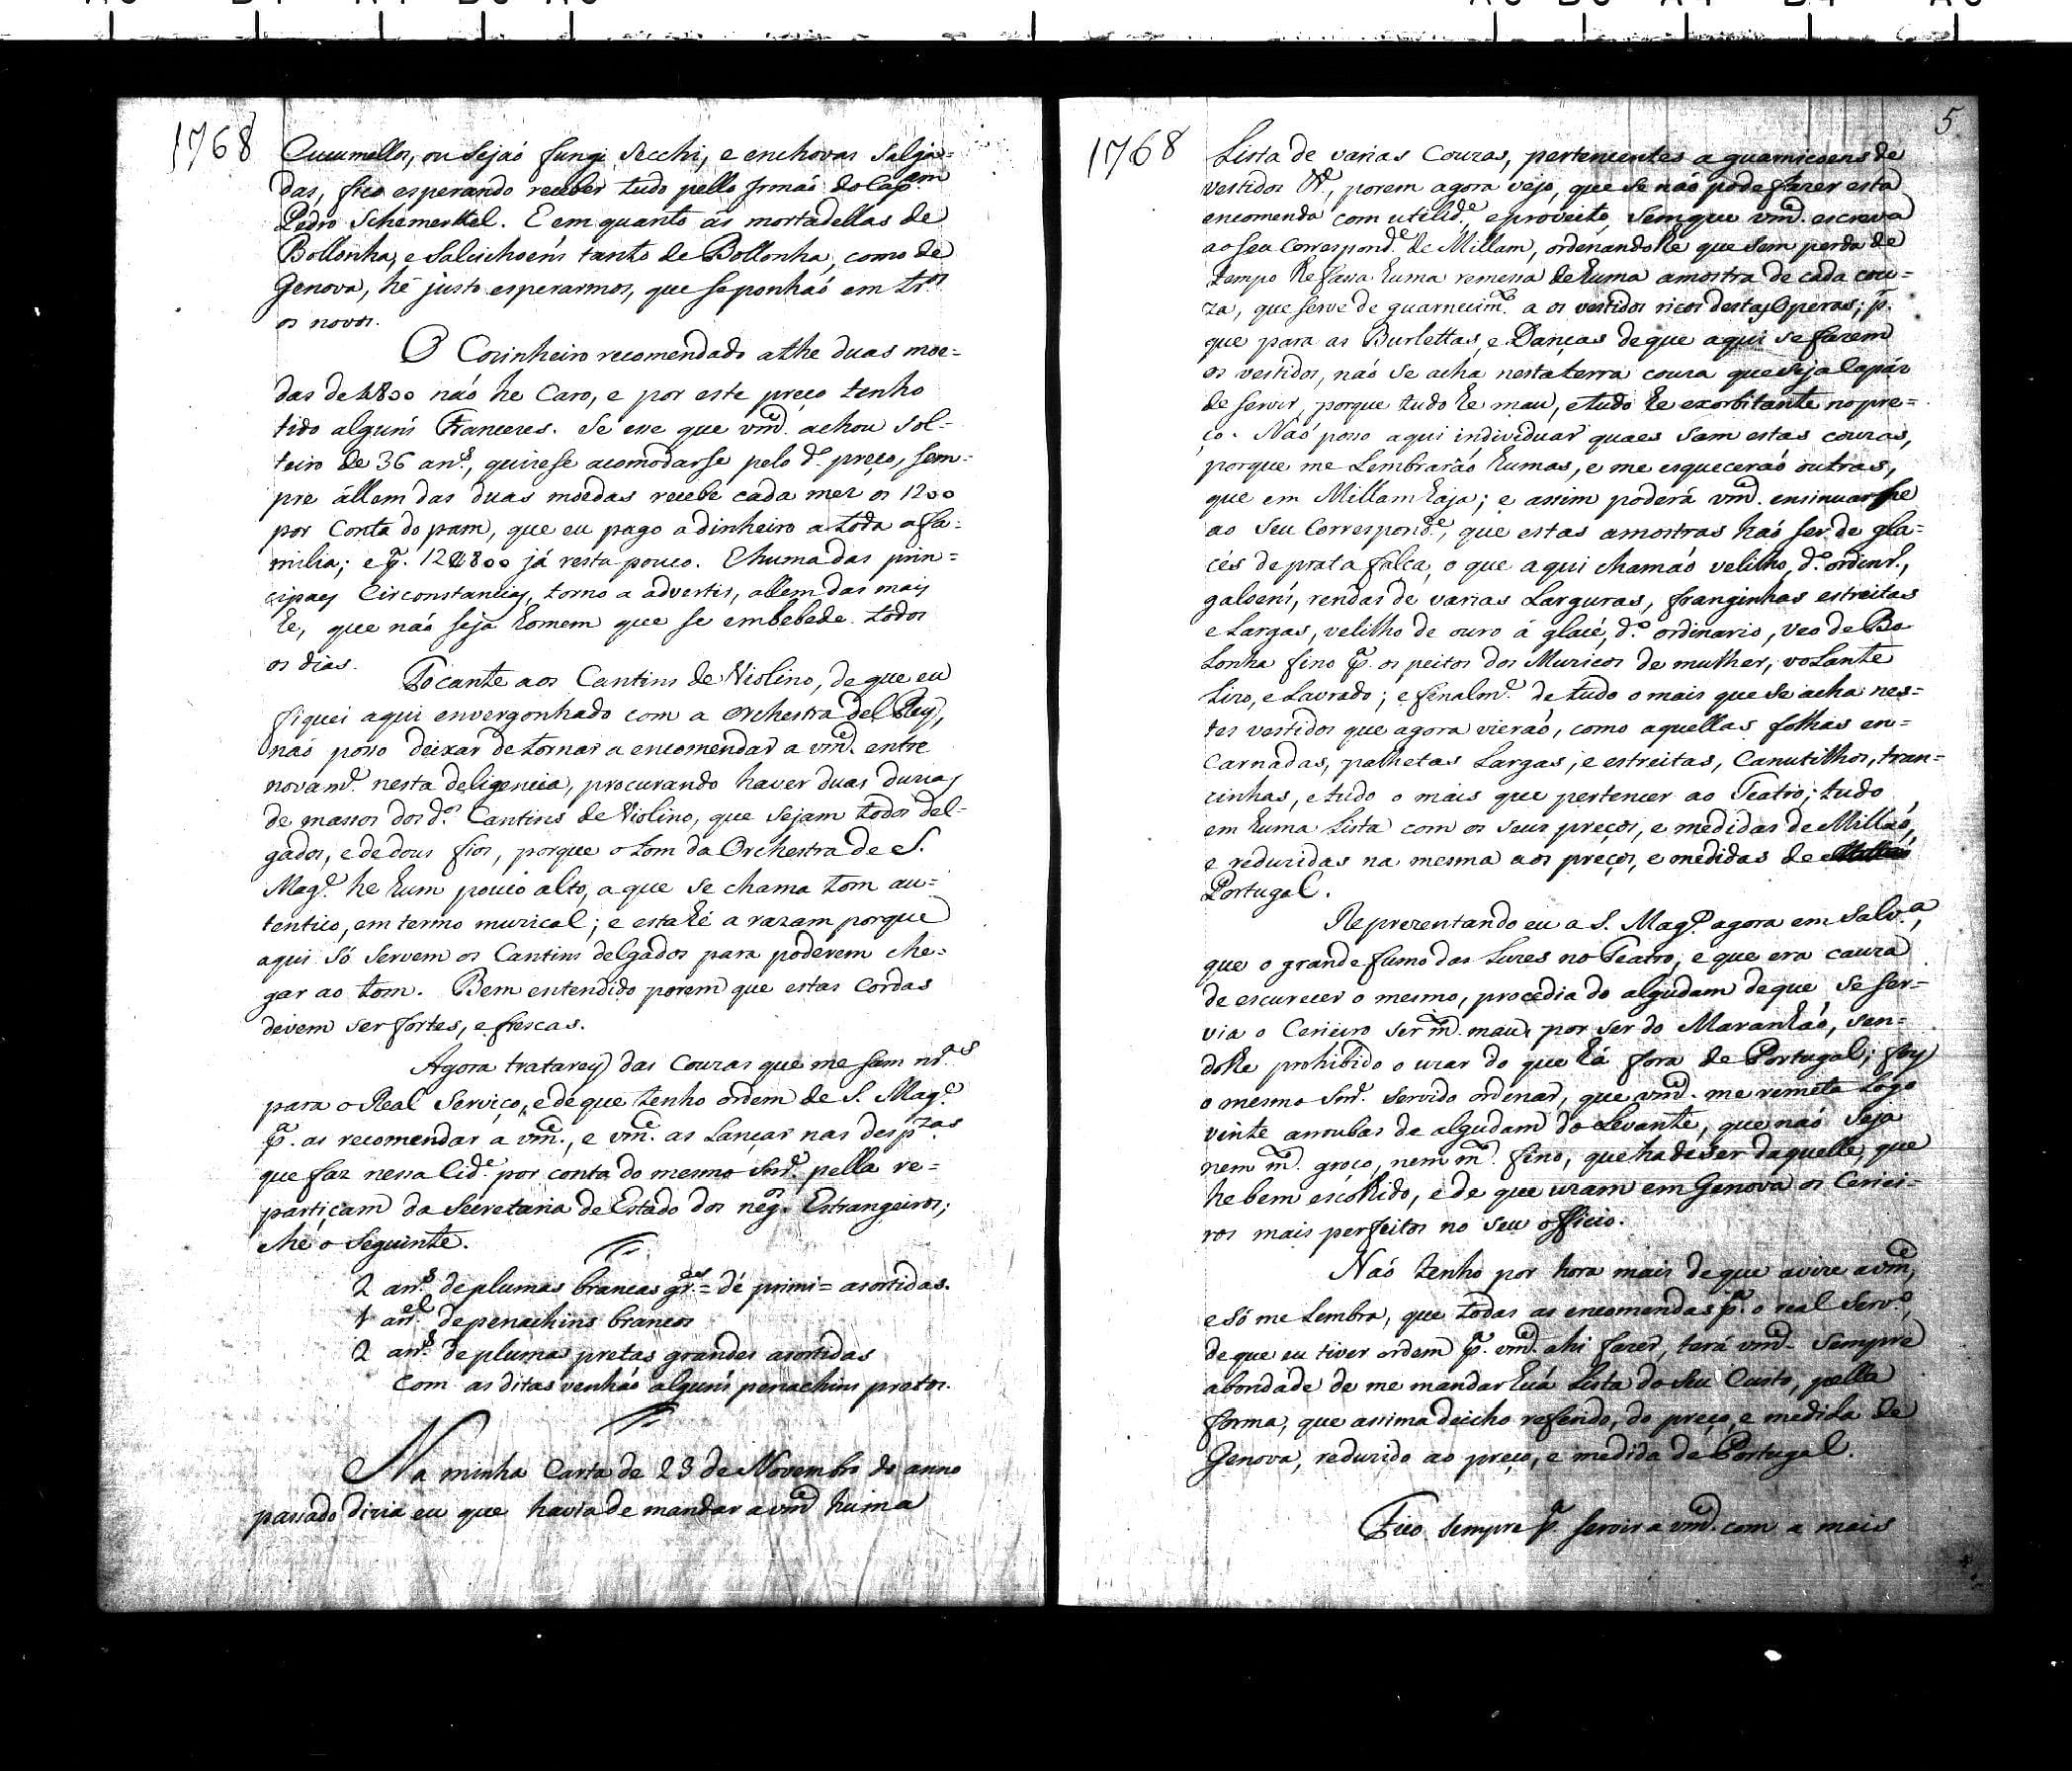 1768
Cucumellos, ou sejaó fungi secchi, e enchovas salga=
das, fico esperando receber tudo pello Irmaó do Cap.am
Pedro Schemerkel. E em quanto ás mortadellas de
Bollonha, e salcichoens tanto de Bollonha, como de
Genova, hé justo esperarmos, que se ponhaó em
os novos.
O Cozinheiro recomendado athe duas moe=
das de 4800 naó he Caro, e por este preço tenho
tido alguns Francezes. Se esse que vm.ce achou sol=
teiro de 36 an.s, quizese acomodarse pelo d.o preço, sem=
pre állem das duas moedas recebe cada mez os 1200
por Conta do pam, que eu pago a dinheiro a toda a fa=
milia; e p.a 12$800 já resta pouco. E huma das prin=
cipaes Circonstancias, torno a advertir, allem das mais
he, que naó seja homem que se embebede todos
os dias.
Tocante aos Cantins de Violino, de que eu
fiquei aqui envergonhado com a Orchestra del Rey,
naó posso deixar de tornar a encomendar a vm.ce entre
novam.e nesta deligencia, procurando haver duas duzias
de massos dos d.os Cantins de Violino, que sejam todos del=
gados, e de dous fios, porque o tom da Orchestra de S.
Mag.e he hum pouco alto, a que se chama tom au=
tentico, em termo muzical; e esta hé a razam porque
aqui só servem os Cantins delgados para poderem che=
gar ao tom. Bem entendido porem que estas Cordas
devem ser fortes, e frescas.
Agora tratarey das Couzas que me sam nr.as
para o Real Serviço, e de que tenho ordem de S. Mag.e
p.a as recomendar a vm.ce, e vm.ce as Lançar nas desp.zas
que faz nessa Cid.e por conta do mesmo Snr. pella re=
partiçam da Secretaria de Estado dos neg.os Estrangeiros;
e he o seguinte.
2 arr.s de plumas brancas gr.des = de primi= asortidas.
1 arr.el de penachins brancos
2 arr.s de pluma pretas grandes asortidas
Com as ditas venhaó alguns penachins pretos.
Na minha Carta de 23 de Novembro do anno
passado dizia eu que havia de mandar a vm.ce huma
5
1768
Lista de varias Couzas, pertencentes a guarniçoens de
vestidos &.a, porem agora vejo, que se naó pode fazer esta
encomenda com utelid.e, e proveito, sem que vm.ce escreva
ao seu Correspond.e de Millam, ordenandolhe que sem perda de
tempo lhe fassa huma remessa de huma amostra de cada cou=
za, que serve de guarnecim.to a os vestidos ricos destas Operas; p.
que para as Burlettas, e Danças de que aqui se fazem
os vestidos, naó se acha nesta terra couza que seja Capáz
de servir, porque tudo he mau, e tudo he exorbitante no pre=
ço. Naó posso aqui individuar quaes sam estas couzas,
porque me Lembraráo humas, e me esqueceraó outras,
que em Millam haja; e assim poderá vm.ce ensinuar lhe
ao seu Correspond.e, que estas amostras haó ser de gla=
cés de prata falça, o que aqui chamaó velilho, d.o ordinr.o,
galoens, rendas de varias Larguras, franginhas estreitas
e Largas, velilho de ouro á glacé, d.o ordinario, veo de Bo
Lonha fino p.a os peitos dos Muzicos de mulher, voLante
Lizo, e Lavrado; e finalm.e de tudo o mais que se acha nes=
tes vestidos que agora vieraó, como aquellas folhas en=
carnadas, palhetas Largas, e estreitas, Canutilhos, tran=
cinhas, e tudo o mais que pertencer ao Teatro; tudo
em huma Lista com os seus preços, e medidas de Millaó,
e reduzidas na mesma aos preços, e medidas de
Portugal.
Reprezentando eu a S. Mag.e agora em Salv.a,
que o grande fumo das Luzes no Teatro, e que era cauza
de escurecer o mesmo, procedia do algudam de que se ser=
via o Cerieiro ser m.to mau, por ser do Maranhaó, sen=
dolhe prohibido o uzar do que há fora de Portugal; foy
o mesmo Snr. servido ordenar, que vm.ce me remeta Logo
vinte arroubas de algudam do Levante, que naó seja
nem m.to groço, nem m.to fino, que ha de ser daquelle, que
he bem escolhido, e de que uzam em Genova os Cerieí=
ros mais perfeitos no seu officio.
Naó tenho por hora mais de que avize a vm.ce,
e só me Lembra, que todas as encomendas p.a o real Serv.o,
de que eu tiver ordem p.a vm.ce ahi fazer, terá vm.ce sempre
a bondade de me mandar huá Lista do seu Custo, pella
forma, que assima deicho referido, do preço, e medida de
Genova, reduzido ao preço, e medida de Portugal.
Fico sempre p.a servir a vm.ce com a mais